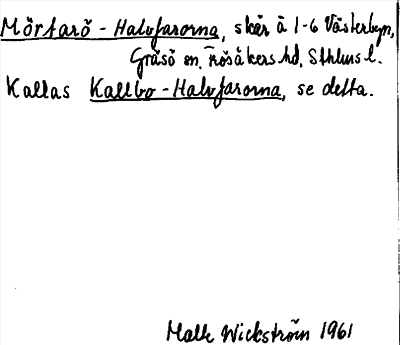 Mörtarö - Halvfarorna, skär å 1-6 Västerbyn,
Gräsö sn. Frösåkers hd, Sthlms l.
Kallas Kallbo - Halvfarorna, se detta.
Wickström 1961